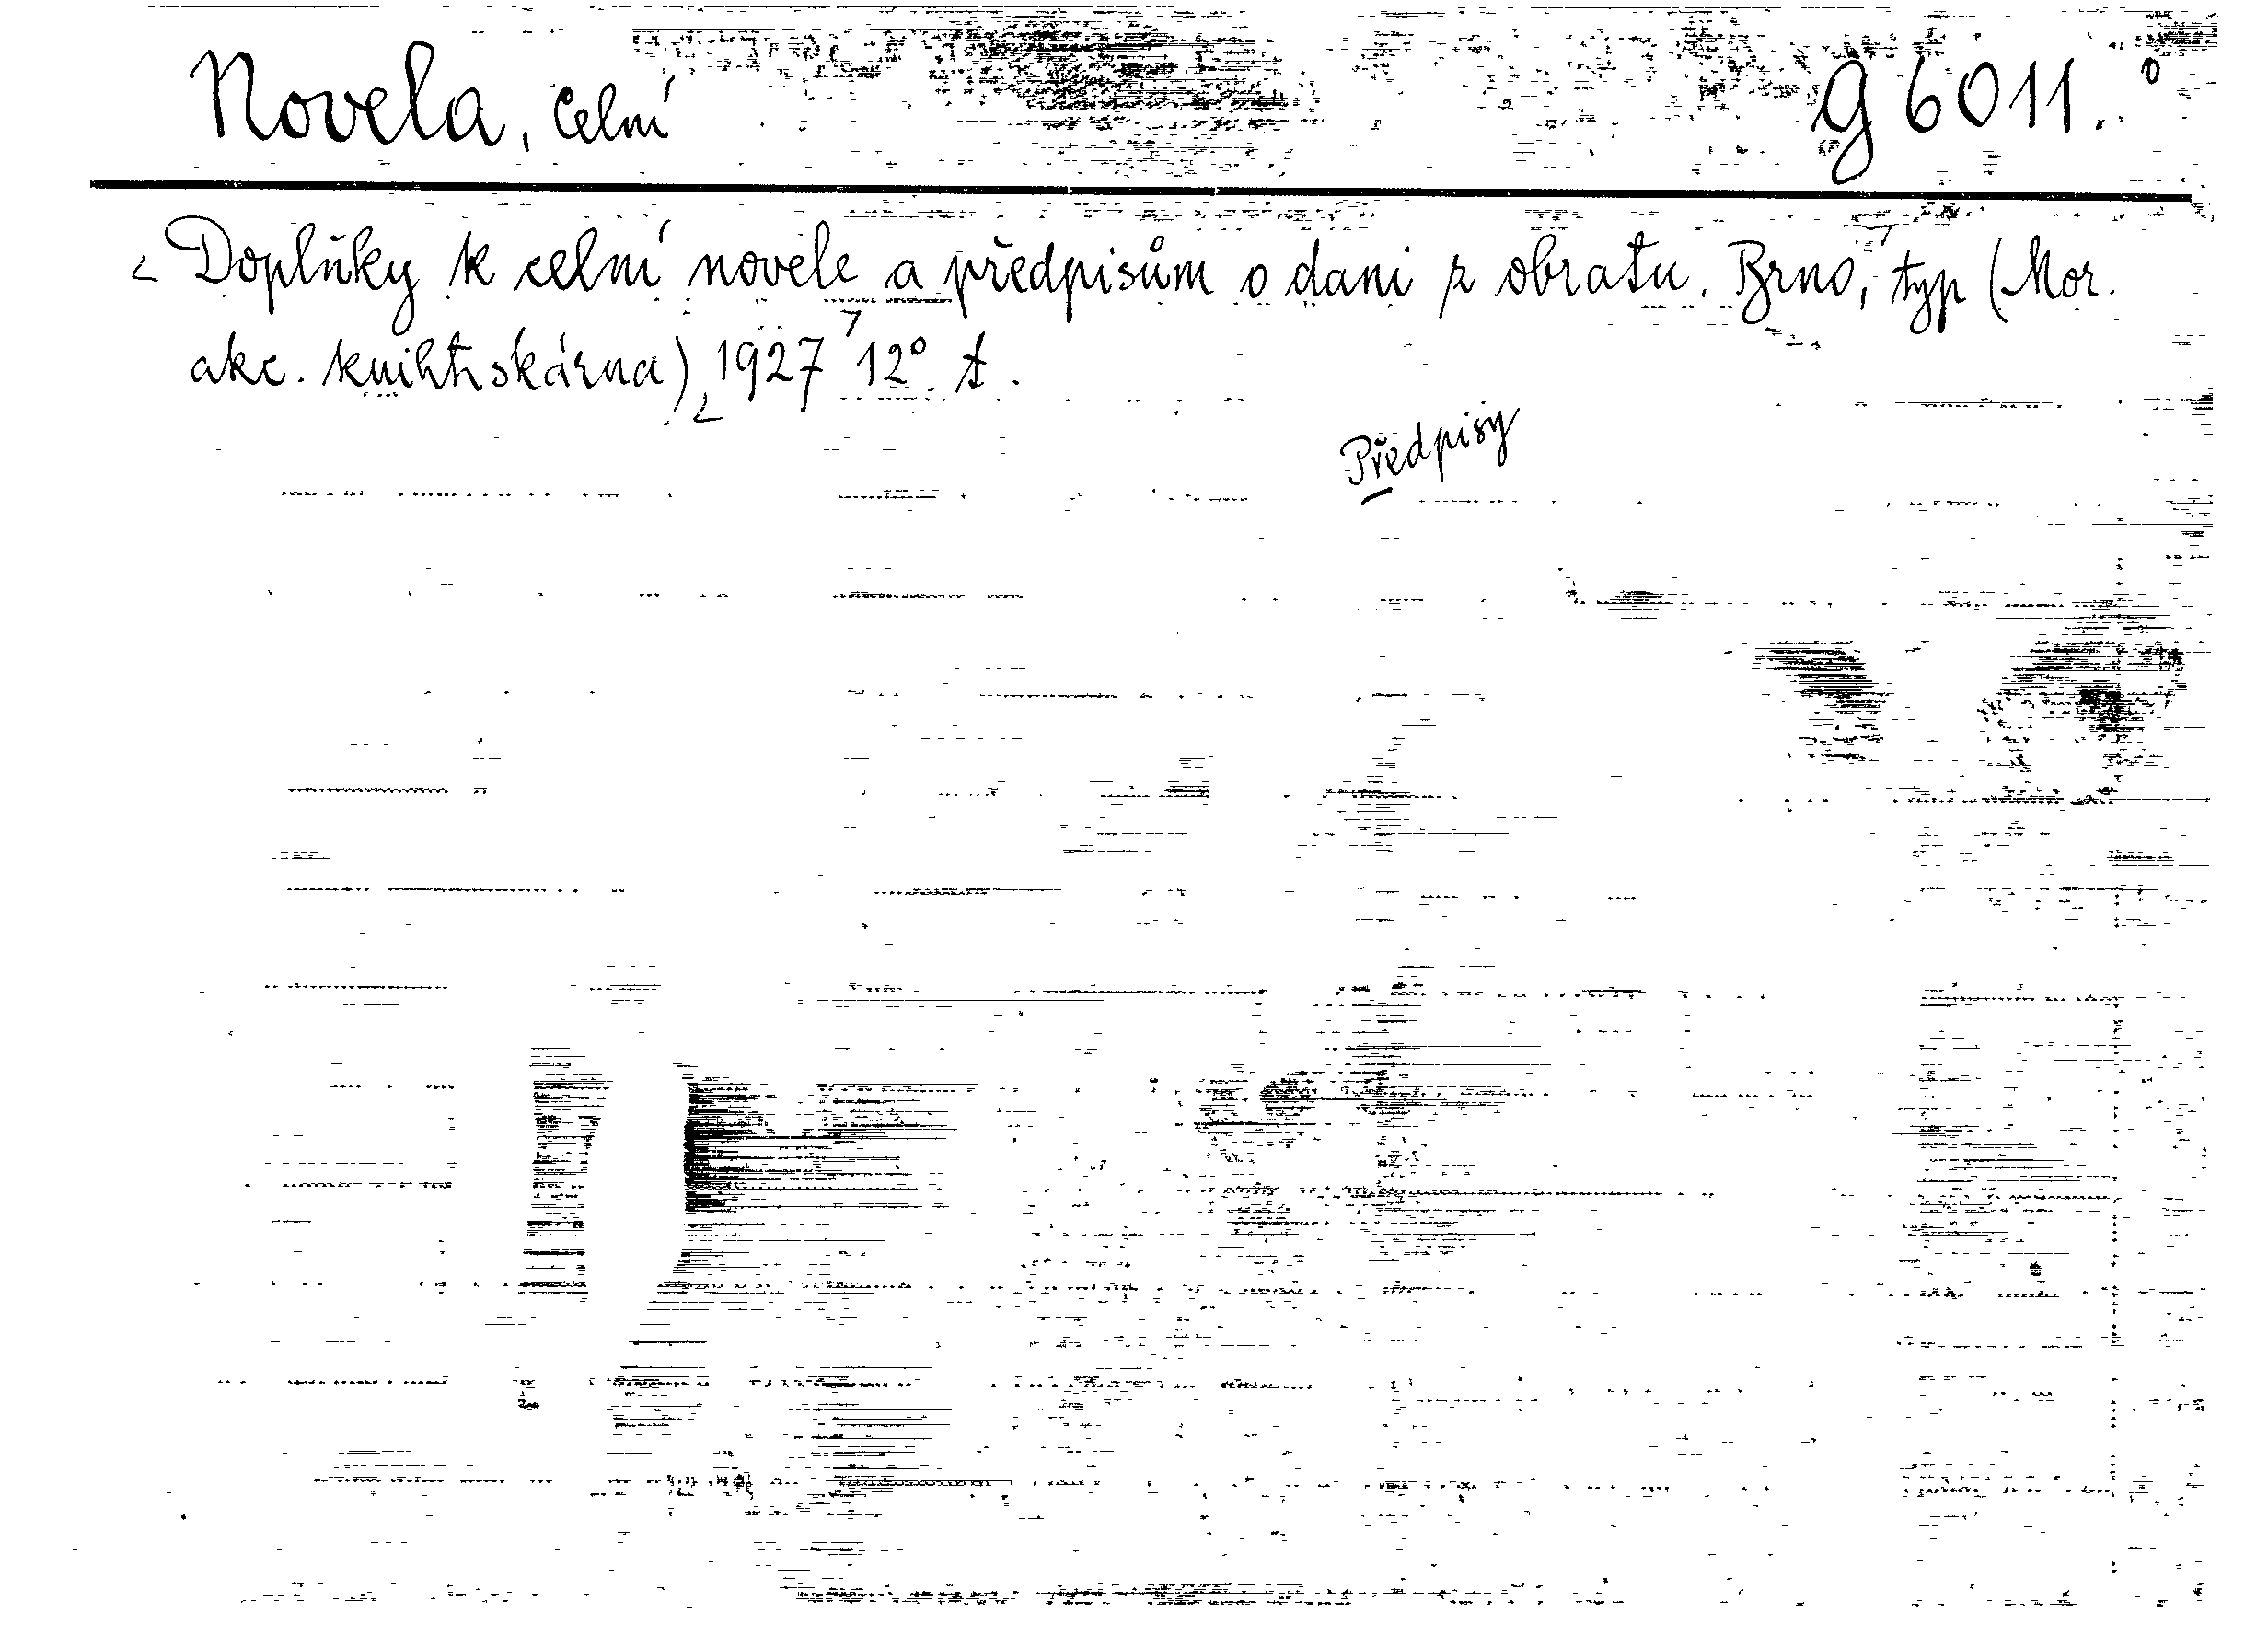 Novela, celní g 6011.°
Doplňky k celní novele a předpisům o dani z obratu. Brno, typ (Mor.
akc. knihtiskárna) 1927 12°. t.
Předpisy